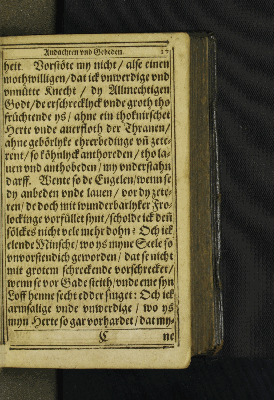 Andachten vnd Gebeden. 27
heit. Vorstöte my nicht / alse einen
mothwilligen / dat ick vnwerdige vnd
vnnütte Knecht / dy Allmechtigen
Godt / de erschrecklyck vnde groth tho
früchtende ys / ahne ein thoknirschet
Herte vnde auerfloth der Thranen /
ahne gebörlyke ehrerbedinge vñ zette-
rent / so köhnlyck anthoreden / tho la-
uen vnd anthobeden / my vnderstahn
darff. Wente so de Engelen / wenn se
dy anbeden vnde lauen / vor dy zette-
ren / de doch mit wunderbarlyker Fro-
lockinge vorfüllet synt / scholde ick deñ
sölckes nicht vele mehr dohn? Och ick
elende Minsche / wo ys myne Seele so
vnvorstendich geworden / dat se nicht
mit grotem schreckende vorschrecket /
wenn se vor Gade steith / vnde eme syn
Loff henne secht edder singet: Och ick
armsalige vnde vnwerdige / wo ys
myn Herte so gar vorhardet / dat my-
C ne